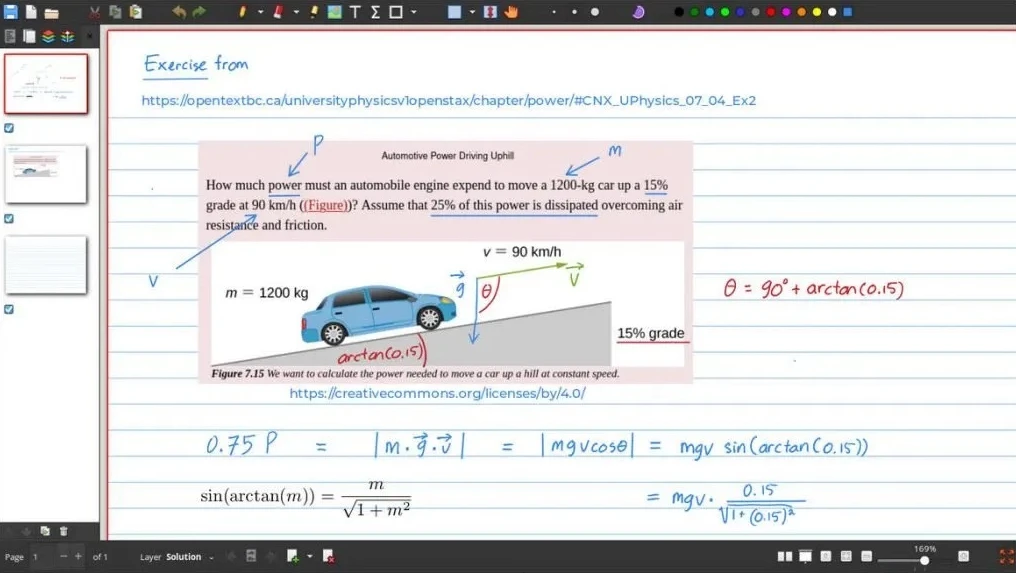 Exercise from
https://opentextbc.ca/universityphysicsv1openstax/chapter/power/#CNX_UPhysics_07_04_Ex2
P
m
Automotive Power Driving Uphill
How much power must an automobile engine expend to move a 1200-kg car up a 15%
grade at 90 km/h ((Figure))? Assume that 25% of this power is dissipated overcoming air
resistance and friction.
v
v = 90 km/h
m = 1200 kg
g⃗
θ
v⃗
θ = 90° + arctan(0.15)
15% grade
arctan(0.15)
Figure 7.15 We want to calculate the power needed to move a car up a hill at constant speed.
https://creativecommons.org/licenses/by/4.0/
0.75 P = |m·g⃗·v⃗| = |mgvcosθ| = mgv sin(arctan(0.15))
sin(arctan(m)) = m/√(1 + m²)
= mgv · 0.15/√(1 + (0.15)²)
Page 1 of 1 Layer Solution 169%